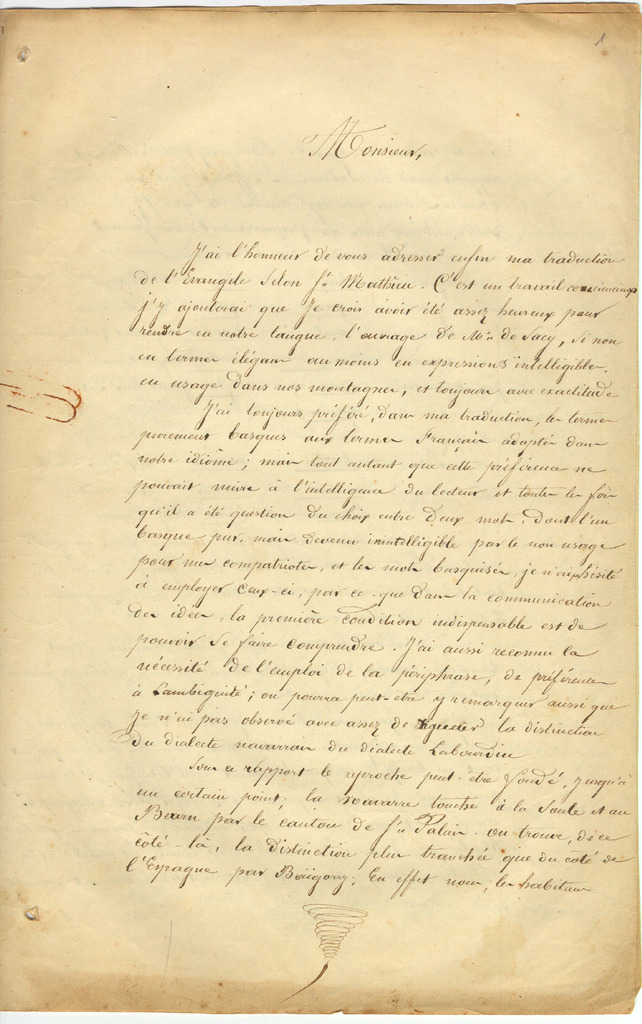 1
Monsieur,
J'ai l'honneur de vous adresser enfin ma traduction
de l'Évangile Selon St. Mathieu. C'est un travail consciencieux
j'y ajouterai que je crois avoir été assez heureux pour
rendre en notre langue, l'ouvrage de Mr. de Sacy, si non
en termes élégans au moins en expressions intelligibles,
en usage dans nos montagnes, et toujours avec exactitude
J'ai toujours préféré, dans ma traduction, les termes
purement basques aux termes Français adoptés dans
notre idiôme; mais tout autant que cette préférence ne
pouvait nuire à l'intelligence du lecteur et toutes les fois
qu'il a été question du choix entre deux mots, dont l'un
basque pur, mais devenu inintelligible par le non usage
pour mes compatriotes, et les mots basquisés, je n'ai hésité
à employer ceux-ci, par ce que dans la communication
des idées, la première condition indispensable est de
pouvoir se faire comprendre. J'ai aussi reconnu la
nécessité de l'emploi de la périphrase, de préférence
à l'ambiguité; on pourra peut-être y remarquer aussi que
je n'ai pas observé avec assez de rigueur la distinction
du dialecte navarrais du dialecte Labourdin
Sous ce rapport le reproche peut-être fondé, jusqu'à
un certain point; la navarre touche à la Soule et au
Béarn par le canton de St. Palais. on trouve, de ce
côté-là, la distinction plus tranchée que du coté de
l'Espagne par Baïgorry; En effet nous, les habitans